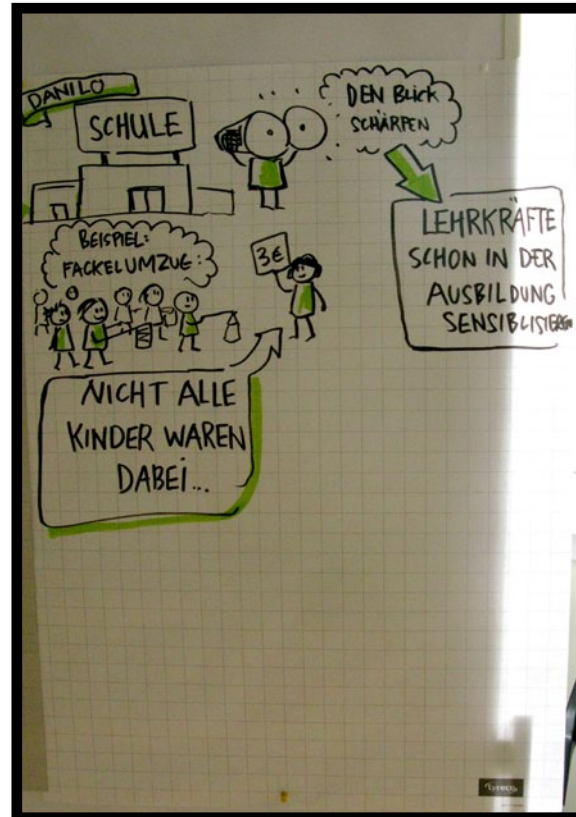 DANILO
SCHULE
DEN BLICK
SCHÄRFEN
LEHRKRÄFTE
SCHON IN DER
AUSBILDUNG
SENSIBLISIEREN
BEISPIEL:
FACKELUMZUG:
3€
NICHT ALLE
KINDER WAREN
DABEI...